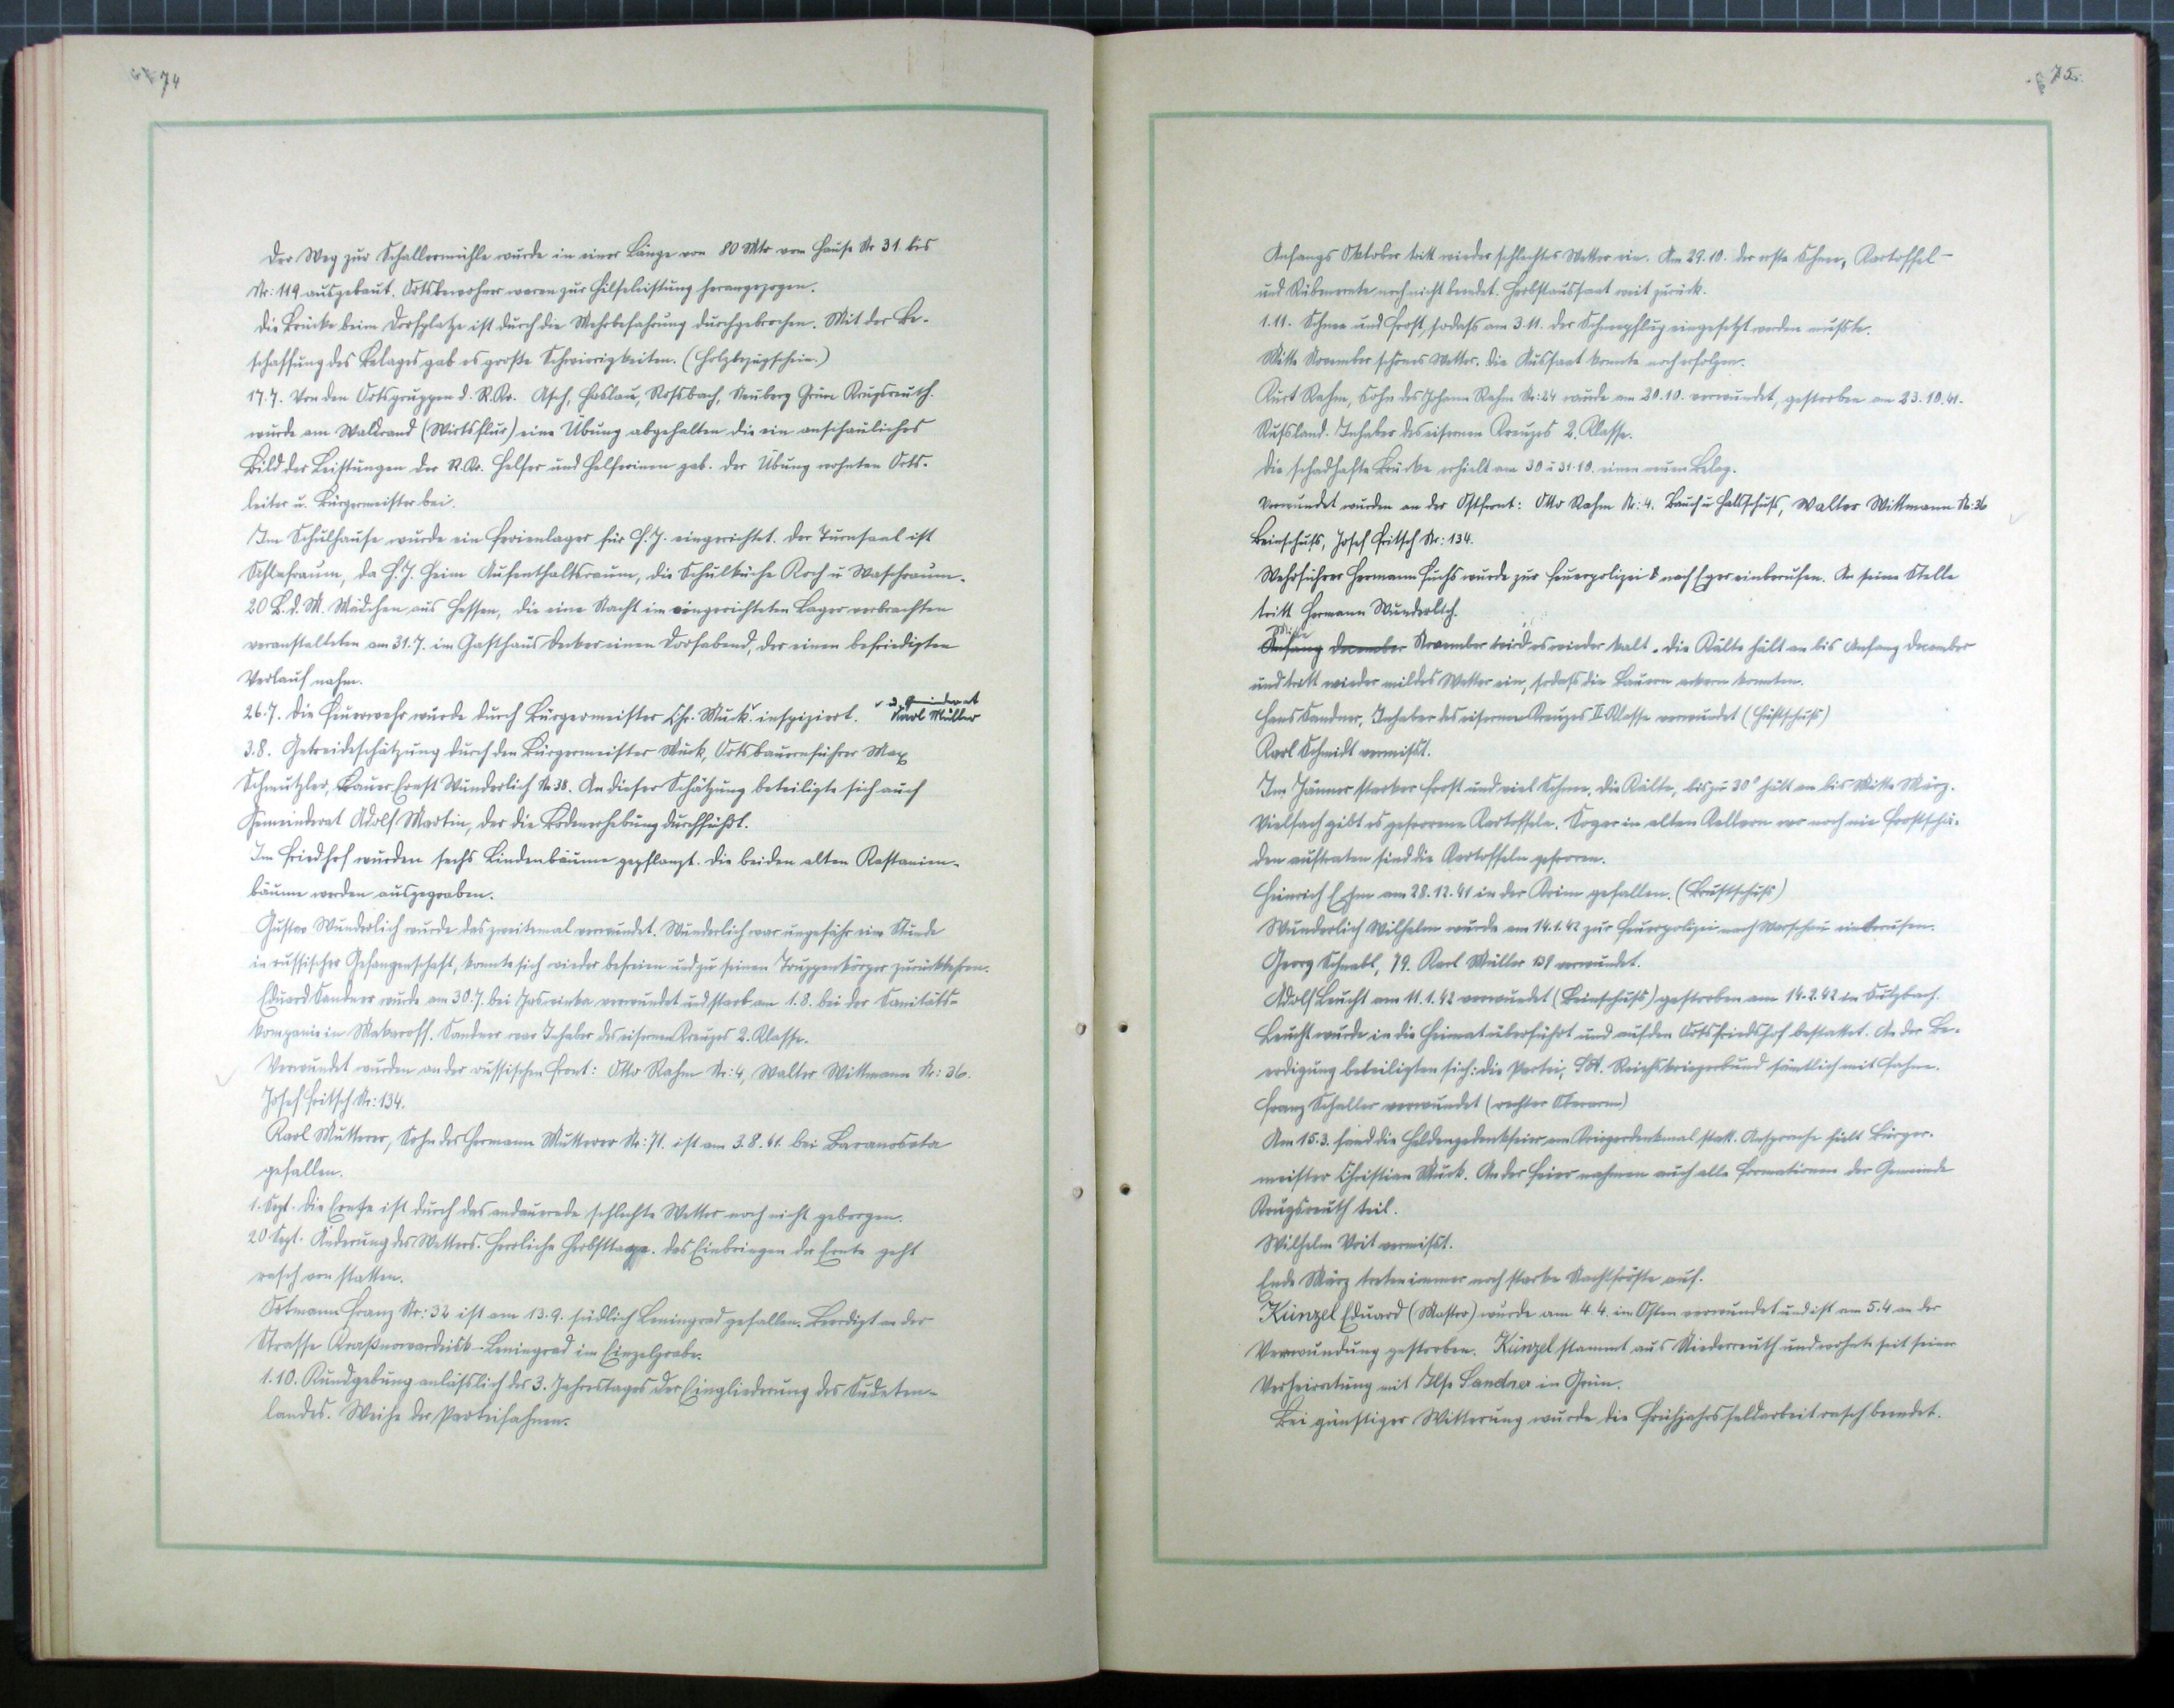 74
Der Weg zur Schallermühle wurde in einer Länge von 80 Mtr vom Hause Nr 31. bis
Nr: 119 ausgebaut. Ortsbewohner waren zur Hilfeleistung herangezogen.
Die Brücke beim Dorfplatze ist durch die Mehrbefahrung durchgebrochen. Mit der Be-
schaffung des Belages gab es große Schwierigkeiten. (Holzbezugschein.)
17.7. Von den Ortsgruppen d. R.Kr. Asch, Haslau, Rossbach, Neuberg Grün Krugsreuth.
wurde am Waldrand (Wirtsflur) eine Übung abgehalten die ein anschauliches
Bild der Leistungen der R.Kr. Helfer und Helferinen gab. Der Übung wohnten Orts-
leiter u. Bürgermeister bei.
Im Schulhause wurde ein Ferienlager für H.J. eingerichtet. Der Turnsaal ist
Schlafraum, da H.J. Heim Aufenthaltsraum, die Schulküche Koch u Waschraum.
20 B.d.M. Mädchen aus Hessen, die eine Nacht im eingerichteten Lager verbrachten
veranstalteten am 31.7. im Gasthaus Decker einen Dorfabend, der einen befriedigten
Verlauf nahm.
26.7. Die Feuerwehr wurde durch Bürgermeister Chr. Muck. inspiziert. u. Gemeinderat Karl Müller
3.8. Getreideschätzung durch den Bürgermeister Muck, Ortsbauernführer Max
Schmutzler, Bauer Ernst Wunderlich Nr 38. An dieser Schätzung beteiligte sich auch
Gemeinderat Adolf Martin, der die Bodenerhebung durchführt.
Im Friedhof wurden sechs Lindenbäume gepflanzt. Die beiden alten Kastanien-
bäume werden ausgegraben.
Gustav Wunderlich wurde das zweitemal verwundet. Wunderlich war ungefähr eine Stunde
in russischer Gefangenschaft, konnte sich wieder befreien und zu seinen Truppenkörper zurückkehren.
Eduard Sandner wurde am 30.7. bei verwundet und starb am 1.8. bei der Sanitäts-
kompanie in Makaroff. Sandner war Inhaber des eisernen Kreuzes 2. Klasse.
Verwundet wurden an der russischen Front: Otto Rahm Nr: 4, Walter Wittmann Nr: 36.
Josef Fritsch Nr: 134.
Karl Mutterer, Sohn des Hermann Mutterer Nr: 71. ist am 3.8.41. bei
gefallen.
1. Sept. Die Ernte ist durch das andauernde schlechte Wetter noch nicht geborgen.
20 Sept. Änderung des Wetters. Herrliche Herbsttage. Das Einbringen der Ernte geht
rasch von statten.
Ortmann Franz Nr: 32 ist am 13.9. südlich Leningrad gefallen. Beerdigt an der
Strasse Kraßnowardeisk-Leningrad im Einzelgrabe.
1.10. Kundgebung anlässlich des 3. Jahrestages der Eingliederung des Sudeten-
landes. Weihe der Parteifahnen.
75.
Anfangs Oktober tritt wieder schlechtes Wetter ein. Am 29.10. der erste Schnee, Kartoffel-
und Rübenernte noch nicht beendet. Herbstaussaat weit zurück.
1.11. Schnee und Frost, sodass am 3.11. der Schneepflug eingesetzt werden musste.
Mitte November schönes Wetter. Die Aussaat konnte noch erfolgen.
Kurt Rahm, Sohn des Johann Rahm Nr: 24 wurde am 20.10. verwundet, gestorben am 23.10.41.
Russland. Inhaber des eisernen Kreuzes 2. Klasse.
Die schadhafte Brücke erhielt am 30 u 31.10. einen neuen Belag.
Verwundet wurden an der Ostfront: Otto Rahm Nr: 4. Bauch u Halsschuss, Walter Wittmann Nr: 36
Beinschuss, Josef Fritsch Nr: 134.
Wehrführer Hermann Fuchs wurde zur Feuerpolizei nach Eger einberufen. An seine Stelle
tritt Hermann Wunderlich.
Mitte
Anfang Dezember November wird es wieder kalt. Die Kälte hält an bis Anfang Dezember
und tritt wieder mildes Wetter ein, sodass die Bauern ackern konnten.
Hans Sandner, Inhaber des eisernen Kreuzes II Klasse verwundet (Hüftschuss)
Karl Schmidt vermisst.
Im Jänner starker Frost und viel Schnee, die Kälte, bis zu 30° hält an bis Mitte März.
Vielfach gibt es gefrorene Kartoffeln. Sogar in alten Kellern wo noch nie Frostschä-
den auftraten sind die Kartoffeln gefroren.
Heinrich am 28.12.41 in der Krim gefallen. (Brustschuss)
Wunderlich Wilhelm wurde am 14.1.42 zur Feuerpolizei nach Warschau einberufen.
Georg Schnabl, 79. Karl Müller 139 verwundet.
Adolf Leucht am 11.1.42 verwundet (Beinschuss) gestorben am 14.2.42 in Sulzbach.
Leucht wurde in die Heimat überführt und auf den Ortsfriedhof bestattet. An der Be-
erdigung beteiligten sich: die Partei, SA. Reichskriegerbund sämtlich mit Fahne.
Franz Schaller verwundet (rechter Oberarm)
Am 15.3. fand die Heldengedenkfeier am Kriegerdenkmal statt. Ansprache hielt Bürger-
meister Christian Muck. An der Feier nahmen auch alle Formationen der Gemeinde
Krugsreuth teil.
Wilhelm Voit vermisst.
Ende März treten immer noch starke Nachtfröste auf.
Künzel Eduard (Master) wurde am 4.4. im Osten verwundet und ist am 5.4 an der
Verwundung gestorben. Künzel stammt aus Niederreuth und wohnte seit seiner
Verheiratung mit Ilse Sandner in Grün.
Bei günstiger Witterung wurde die Frühjahrsfeldarbeit rasch beendet.